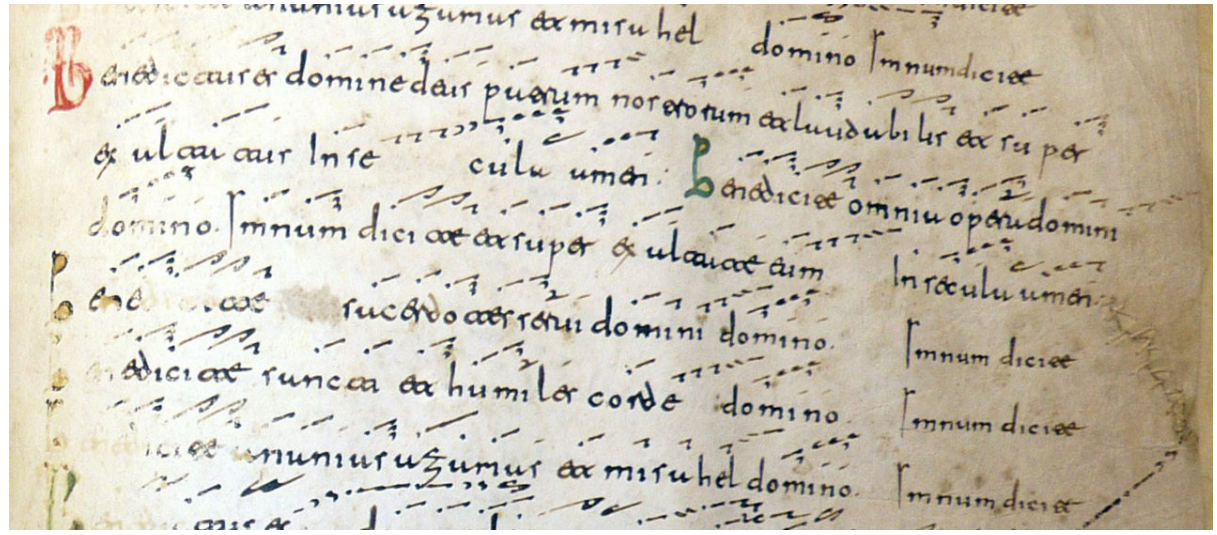 ananias azarias et misahel domino Imnum dicite
Benedictus es domine deus patrum nostrorum et laudabilis et super
exaltatus In secula amen: Benedicite omnia opera domini
domino. Imnum dicite et super exaltate eum In secula amen:
bene ate sacerdotes serui domini domino. Imnum dicite
edicite sancti et humiles corde domino. Imnum dicite
benedicite ananias azarias et misahel domino. Imnum dicite